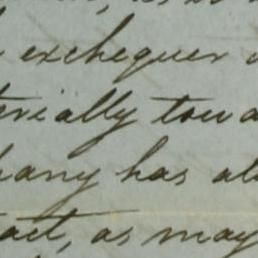 exchequer
erially towa
pany has al
act, as may